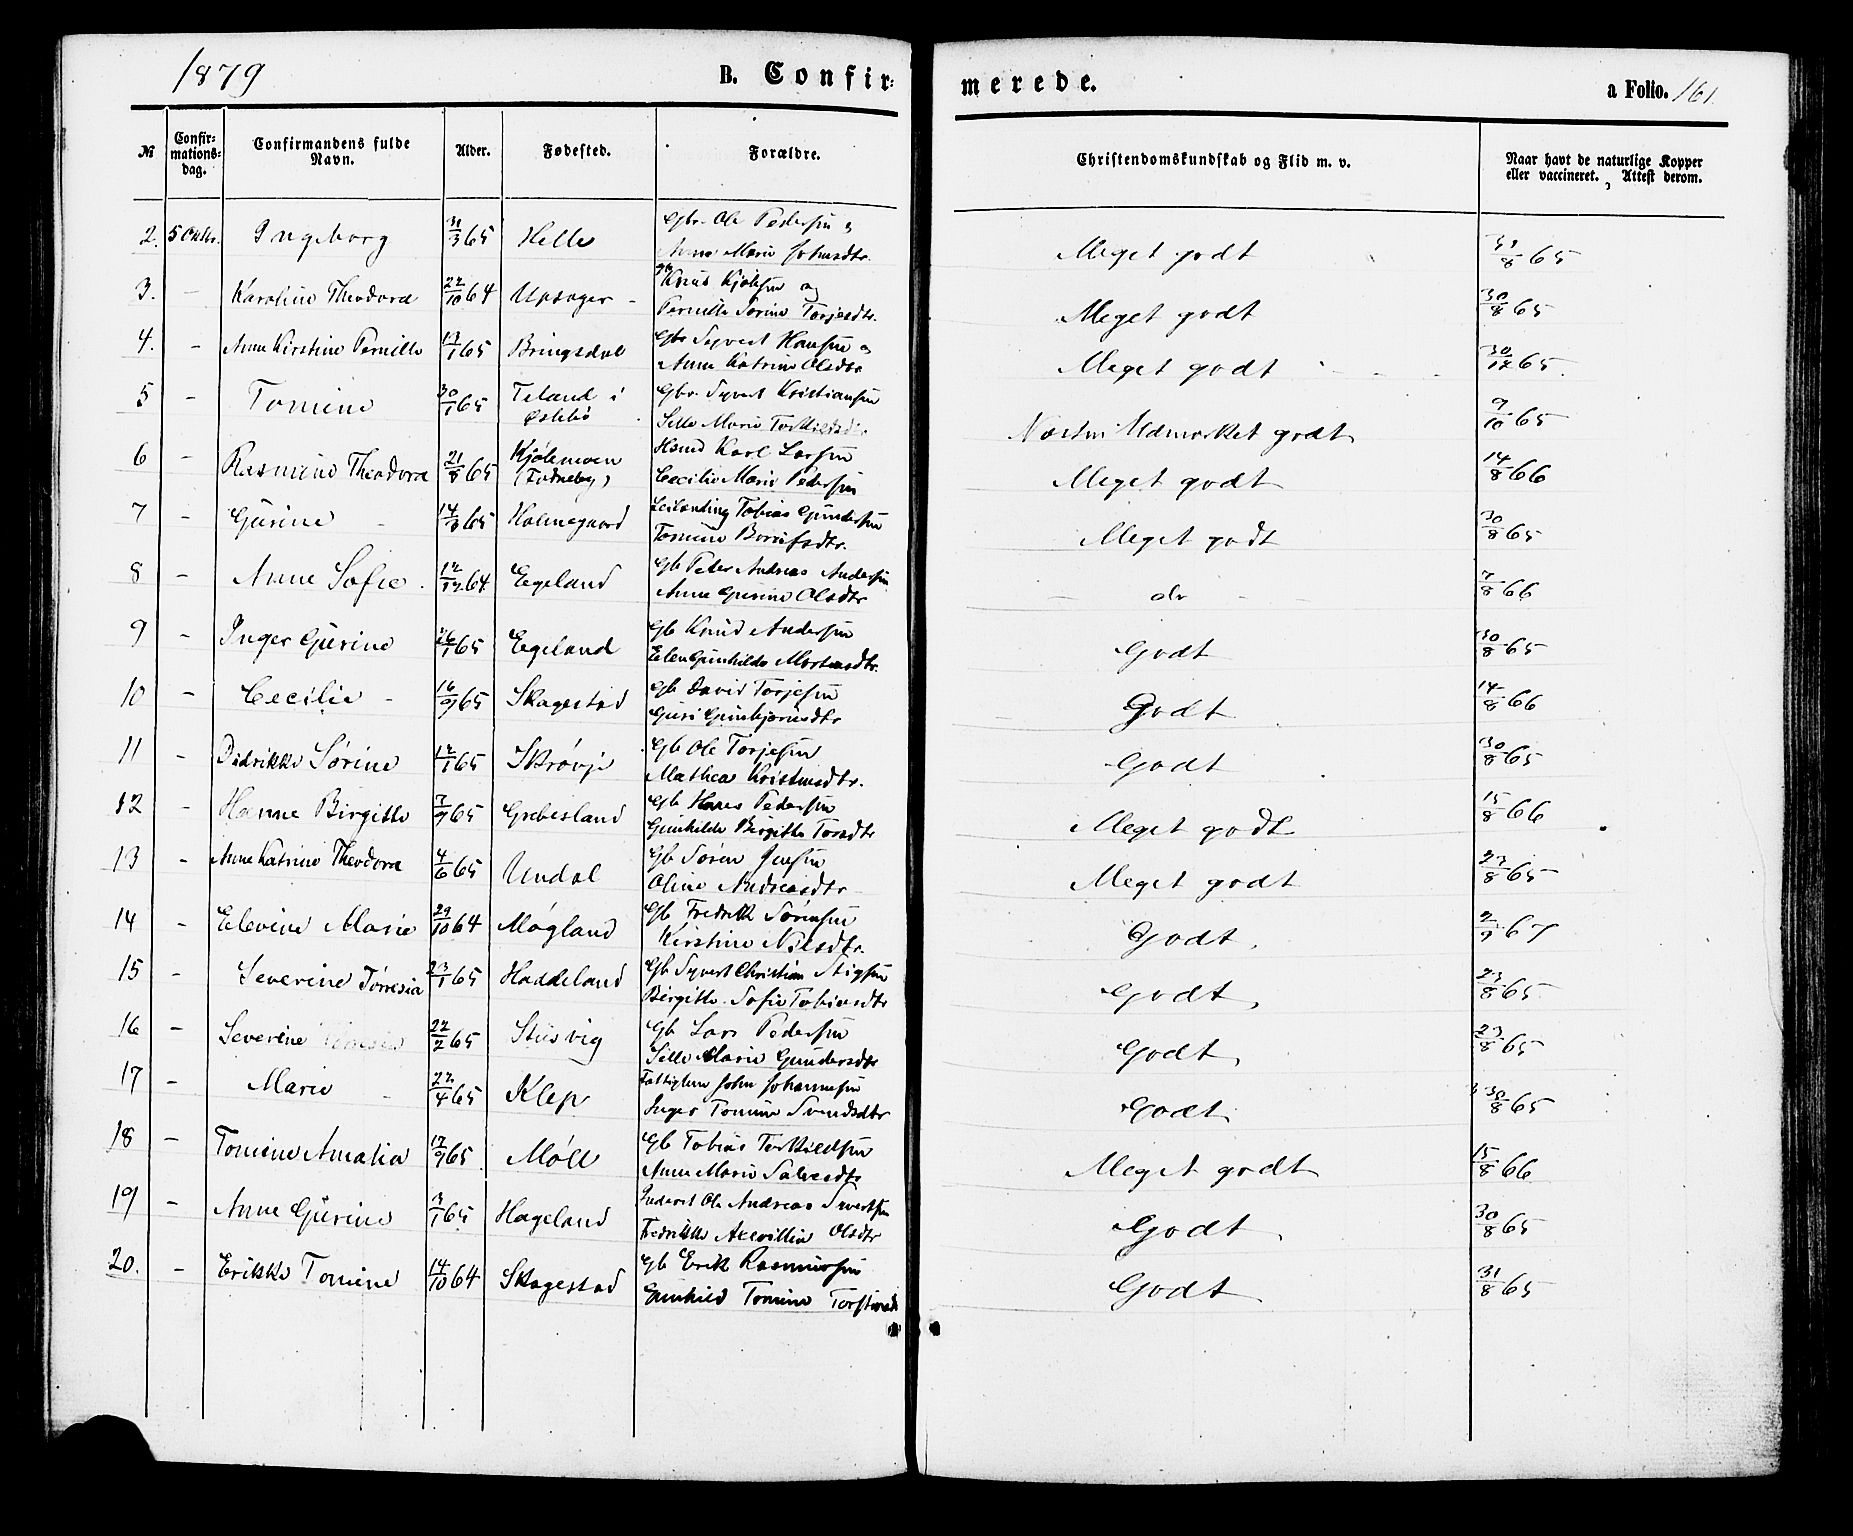 1879 B. Confir- merede. a Folio. 161.
№ Confir-mations-dag. Confirmandens fulde Navn. Alder. Fødested. Forældre. Christendomskundskab og Flid m. v. Naar havt de naturlige Kopper eller vaccineret. Attest derom.
2. 5 Oktbr. Ingeborg 31/3 65 Helle Gbr. Ole Pedersen og Meget godt 31/8 65
Anne Marie Johnsdtr.
3. – Karoline Theodora 22/10 64 Upsager Gb Knud Kjølsen og Meget godt 30/8 65
Pernille Sørine Torjesdtr.
4. – Anne Kirstine Pernille 13/1 65 Bringsdal Gbr Syvert Hansen og Meget godt 30/12 65.
Anne Katrine Olsdtr
5 – Tomine 30/1 65 Teland i Gbr. Syvert Kristiansen Næsten Udmærket godt 9/10 65
Østebø Sille Marie Torkildsdtr
6 – Rasmine Theodora 21/8 65 Kjølemoen Hsmd Karl Larsen Meget godt 14/8 66
(Fødneby) Cecilie Marie Pedersen
7 – Gurine 14/3 65 Holmegaard Leilending Tobias Gundersen Meget godt 30/8 65
Tomine Borrifsdtr.
8 – Anne Sofie 12/12 64 Egeland Gb Peter Andreas Andersen – do – 7/8 66
Anne Gurine Olsdtr
9 – Inger Gurine 26/1 65 Egeland Gb Knud Andersen Godt 30/8 65
Elen Gunhilde Mortensdtr.
10 – Cecilie 16/9 65 Skagestad Gb David Torjesen Godt 14/8 66
Guri Gunbjørnsdtr
11 – Didrikke Sørine 12/1 65 Skrøvje Gb Ole Torjesen Godt 30/8 65
Mathea Kristensdtr.
12 – Hanne Birgitte 7/9 65 Grebesland Gb Hans Pedersen Meget godt 15/8 66
Gunhilde Birgitte Torsdtr
13 – Anne Katrine Theodora 4/6 65 Undal Gb Søren Jensen Meget godt 23/8 65
Oline Andreasdtr
14 – Elevine Marie 29/10 64 Møgland Gb Fredrik Sørensen Godt. 2/9 67
Kirstine Nilsdtr.
15 – Severine Tørresia 23/1 65 Haddeland Gb Syvert Christian Stigsen Godt, 23/8 65
Birgitte Sofie Tobiasdtr
16 – Severine 22/2 65 Stusvig Gb Lars Pedersen Godt, 23/8 65
Sille Marie Gundersdtr
17 – Marie 22/4 65 Klep Fattiglem John Johannesen Godt. 30/8 65
Inger Tomine Svendsdtr
18 – Tomine Amalia 12/9 65 Møll Gb Tobias Torkildsen Meget godt 15/8 66
Anne Marie Salvesdtr
19 – Anne Gurine 3/1 65 Hageland Inderst Ole Andreas Syvertsen Godt. 30/8 65
Fredrikke Axevillia Olsdtr
20. – Erikke Tomine 14/10 64 Skagestad Gb Erik Rasmussen Godt. 31/8 65
Gunhild Tomine Torstensdtr